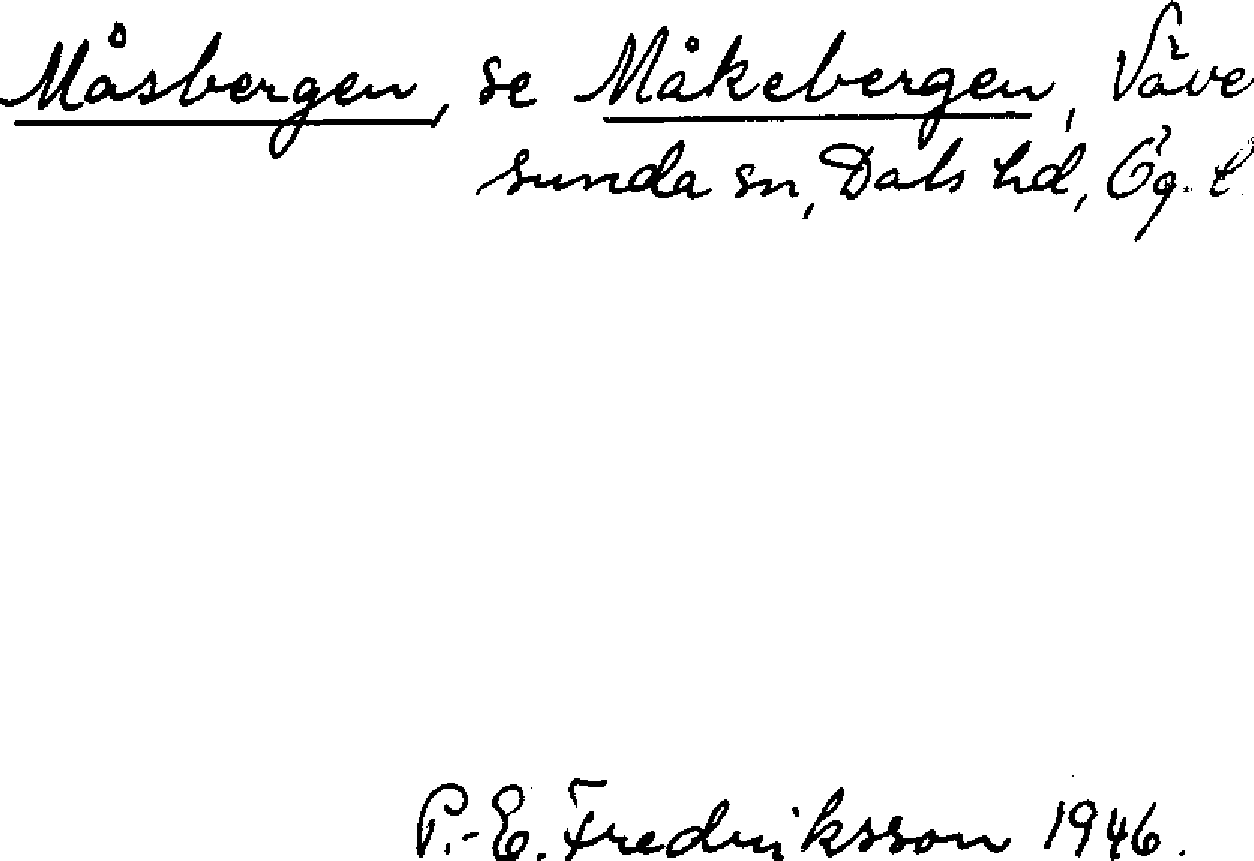 Måsbergen, se Måkebergen, Väve
sunda sn, Dals hd, Ög. l.
P.-E. Fredriksson 1946.